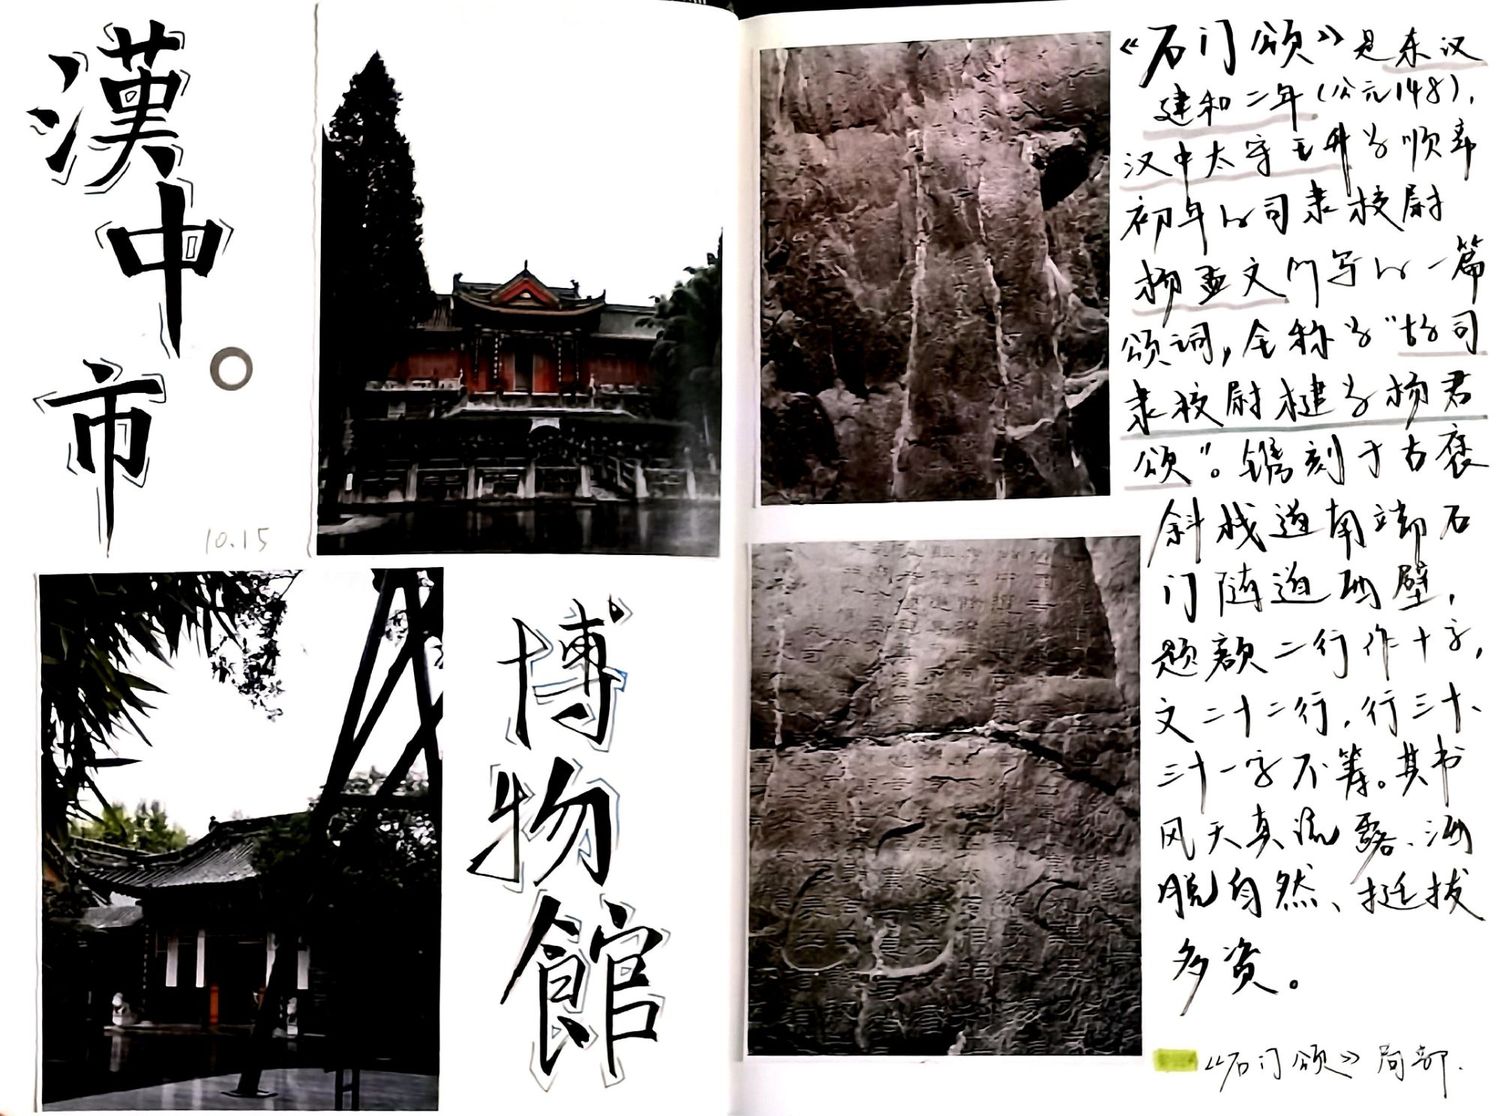 漢中市
10.15
博物館
《石门颂》是东汉
建和二年(公元148),
汉中太守王升为顺帝
初年的司隶校尉
杨孟文所写的一篇
颂词,全称为“故司
隶校尉楗为杨君
颂”。镌刻于古褒
斜栈道南端石
门隧道西壁,
题额二行作十字,
文二十二行,行三十、
三十一字不等。其书
风天真流露、洒
脱自然、挺拔
多姿。
《石门颂》局部.